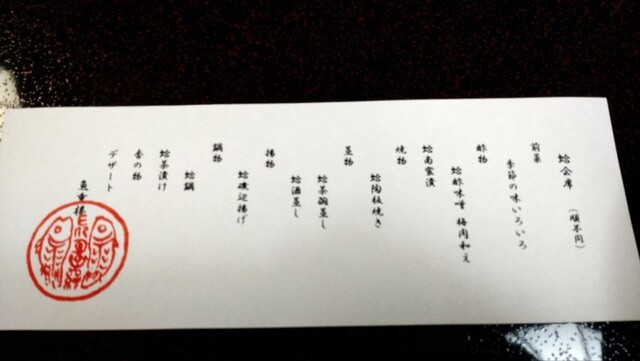 蛤会席 (順不同)
前菜
季節の味いろいろ
酢物
蛤酢味噌 梅肉和え
蛤南蛮漬
焼物
蛤陶板焼き
蒸物
蛤茶碗蒸し
蛤酒蒸し
揚物
蛤磯辺揚げ
鍋物
蛤鍋
蛤茶漬け
香の物
デザート
魚重楼